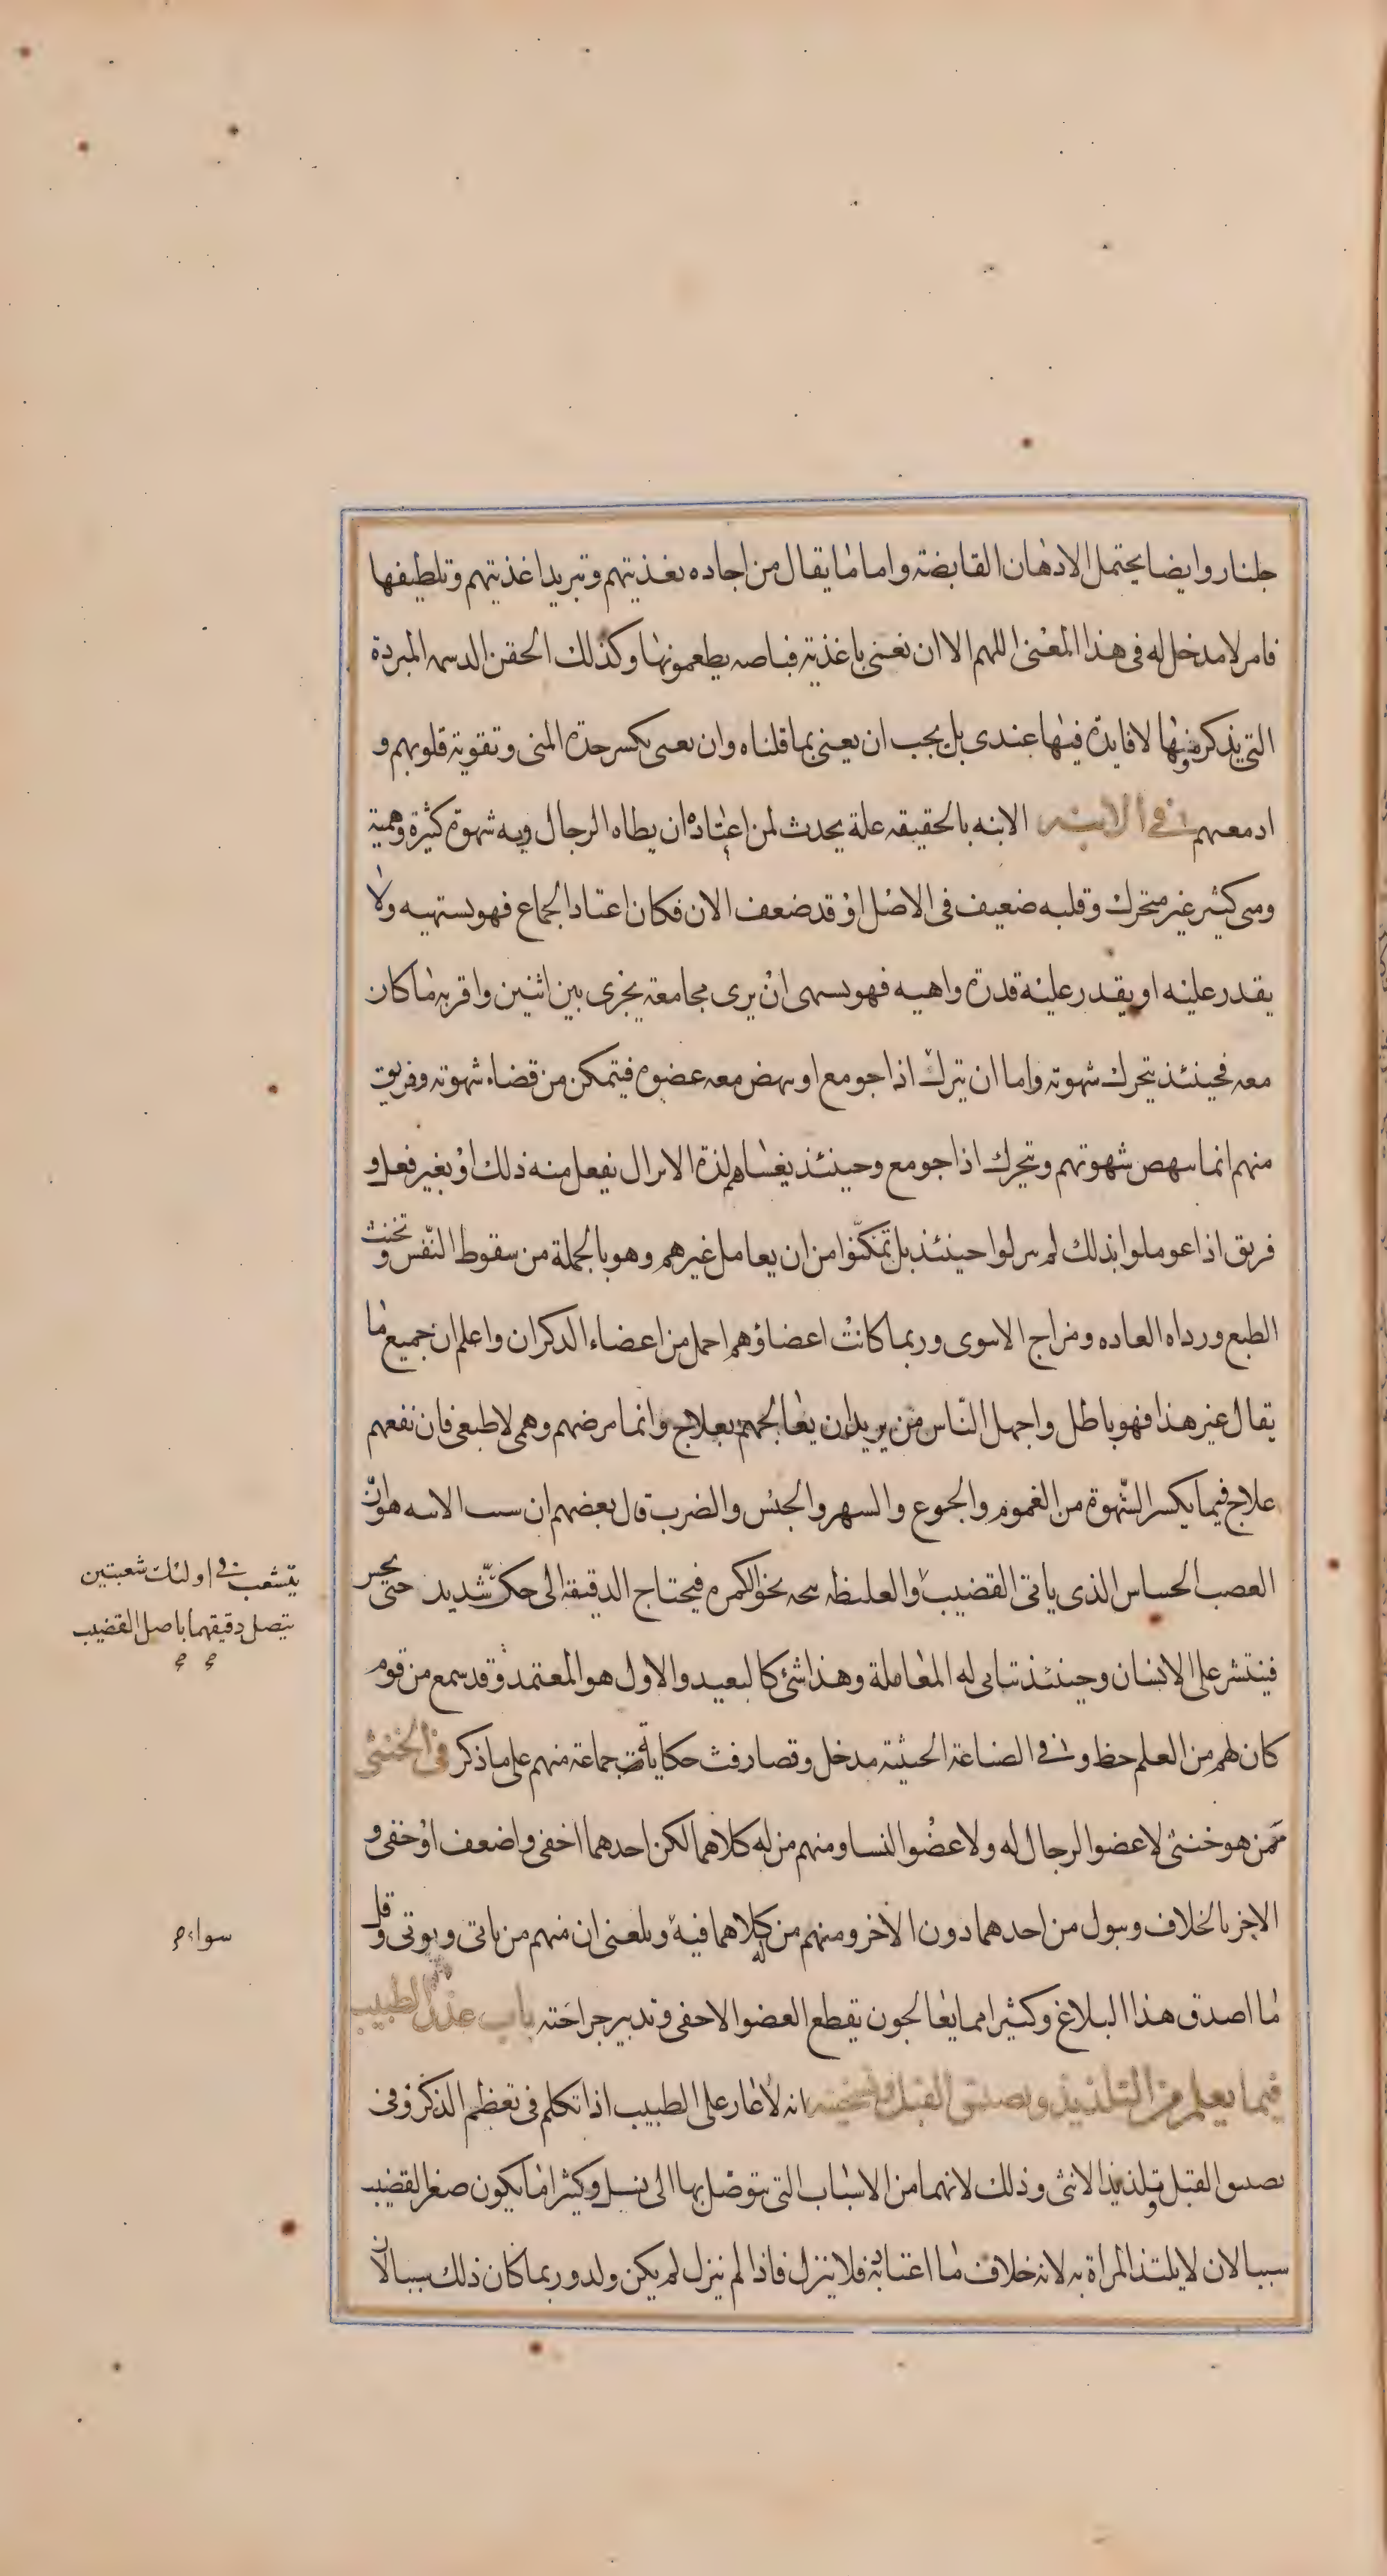 جلنار وايضا يحتمل الادهان القابضة واما ما يقال من اجاده تغذيتهم وتبريد اغذيتهم وتلطيفها
فامر لا مدخل له فى هذا المعنى اللهم الا ان نعنى باغذية قباصه يطعمونها وكذلك الحقن الدسمه المبردة
التى يذكرونها لا فايدة فيها عندى بل يجب ان يعنى بما قلناه وان يعنى بكسر حدة المنى وتقوية قلوبهم و
ادمعهم فى الابنه الابنه بالحقيقه علة يحدث لمن اعتاد ان يطاه الرجال وبه شهوة كثيرة وهمية
ومنى كثير غير متحرك وقلبه ضعيف فى الاصل او قد ضعف الان فكان اعتاد الجماع فهو يستهيه ولا
يقدر عليه او يقدر عليه قدرة واهيه فهو يسهى ان يرى مجامعة يجرى بين اثنين واقربه ما كان
معه فحينئذ يتحرك شهوته واما ان يترك اذا جومع او ينهض معه عضوه فيتمكن من قضاء شهوته وفريق
منهم انما ينهض شهوتهم ويتحرك اذا جومع وحينئذ يغشاهم لذة الانزال بفعل منه ذلك او بغير فعل و
فريق اذا عوملوا بذلك لم ينزلوا حينئذ بل تمكنوا من ان يعامل غيرهم وهو بالجملة من سقوط النفس وتخنث
الطبع ورداه العاده ومزاج الانثوى وربما كانت اعضاؤهم اجمل من اعضاء الذكران واعلم ان جميع ما
يقال غير هذا فهو باطل واجهل الناس من يريد ان يعالجهم بعلاج وانما مرضهم وهمى لا طبعى فان نفعهم
علاج فيما يكسر الشهوة من الغموم والجوع والسهر والحبس والضرب قال بعضهم ان سبب الابنه هو ان
العصب الحساس الذى ياتى القضيب والغليظه نحو الكمره فيحتاج الدقيقه الى حك شديد حتى يحس
يتشعب فى اولئك شعبتين
يتصل دقيقهما باصل القضيب
فينتشر على الانسان وحينئذ تتاتى له المعاملة وهذا شئ كالبعيد والاول هو المعتمد وقد سمع من قوم
كان لهم من العلم حظ وفى الصناعة الخبيثة مدخل وتصادفت حكايات جماعة منهم على ما ذكر فى الخنثى
ممن هو خنثى لا عضو الرجال له ولا عضو النسا ومنهم من له كلاهما لكن احدهما اخفى واضعف او خفى و
الاخر بالخلاف ويبول من احدهما دون الاخر ومنهم من كلاهما فيه وبلغنى ان منهم من ياتى ويوتى وقل
سواء
ما اصدق هذا البلاغ وكثيرا مما يعالجون بقطع العضو الاخفى وتدبير جراحته باب عذر الطبيب
فيما يعلم من التلذيذ وتضييق القبل وتسخينه انه لا عار على الطبيب اذا تكلم فى تعظم الذكر وفى
تضيىق القبل وتلذيذ الانثى وذلك لانهما من الاسباب التى يتوصل بها الى نسل وكثيرا ما يكون صغر القضيب
سببا لان لا يلتذ المراة به لانه خلاف ما اعتادته فلا ينزل فاذا لم ينزل لم يكن ولد وربما كان ذلك سببا لان